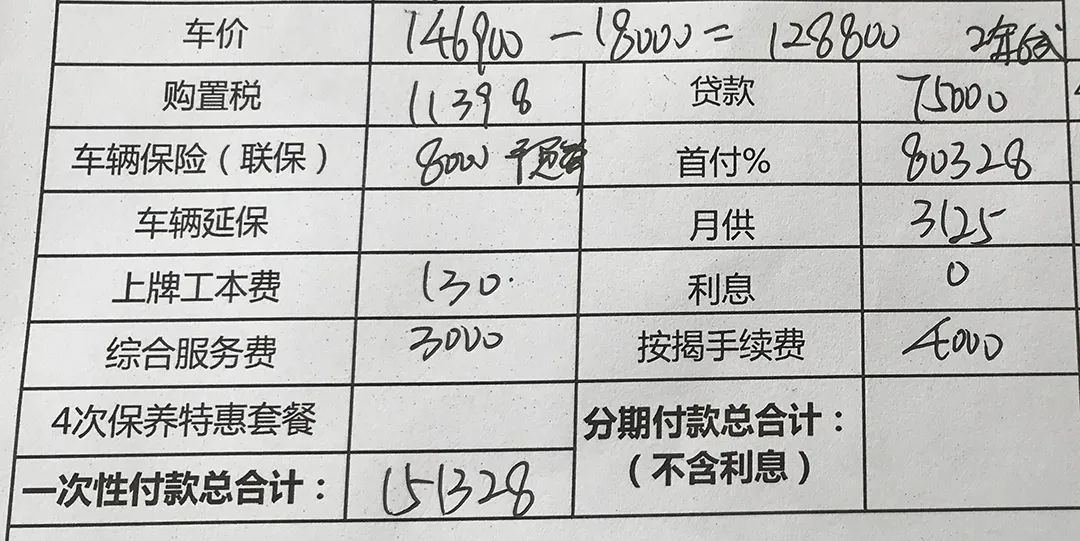 车价 146900 - 18000 = 128800
购置税 11398 贷款 75000
车辆保险(联保) 8000 首付% 80328
车辆延保 月供 3125
上牌工本费 130 利息 0
综合服务费 3000 按揭手续费 4000
4次保养特惠套餐 分期付款总合计:
(不含利息)
一次性付款总合计: 151328